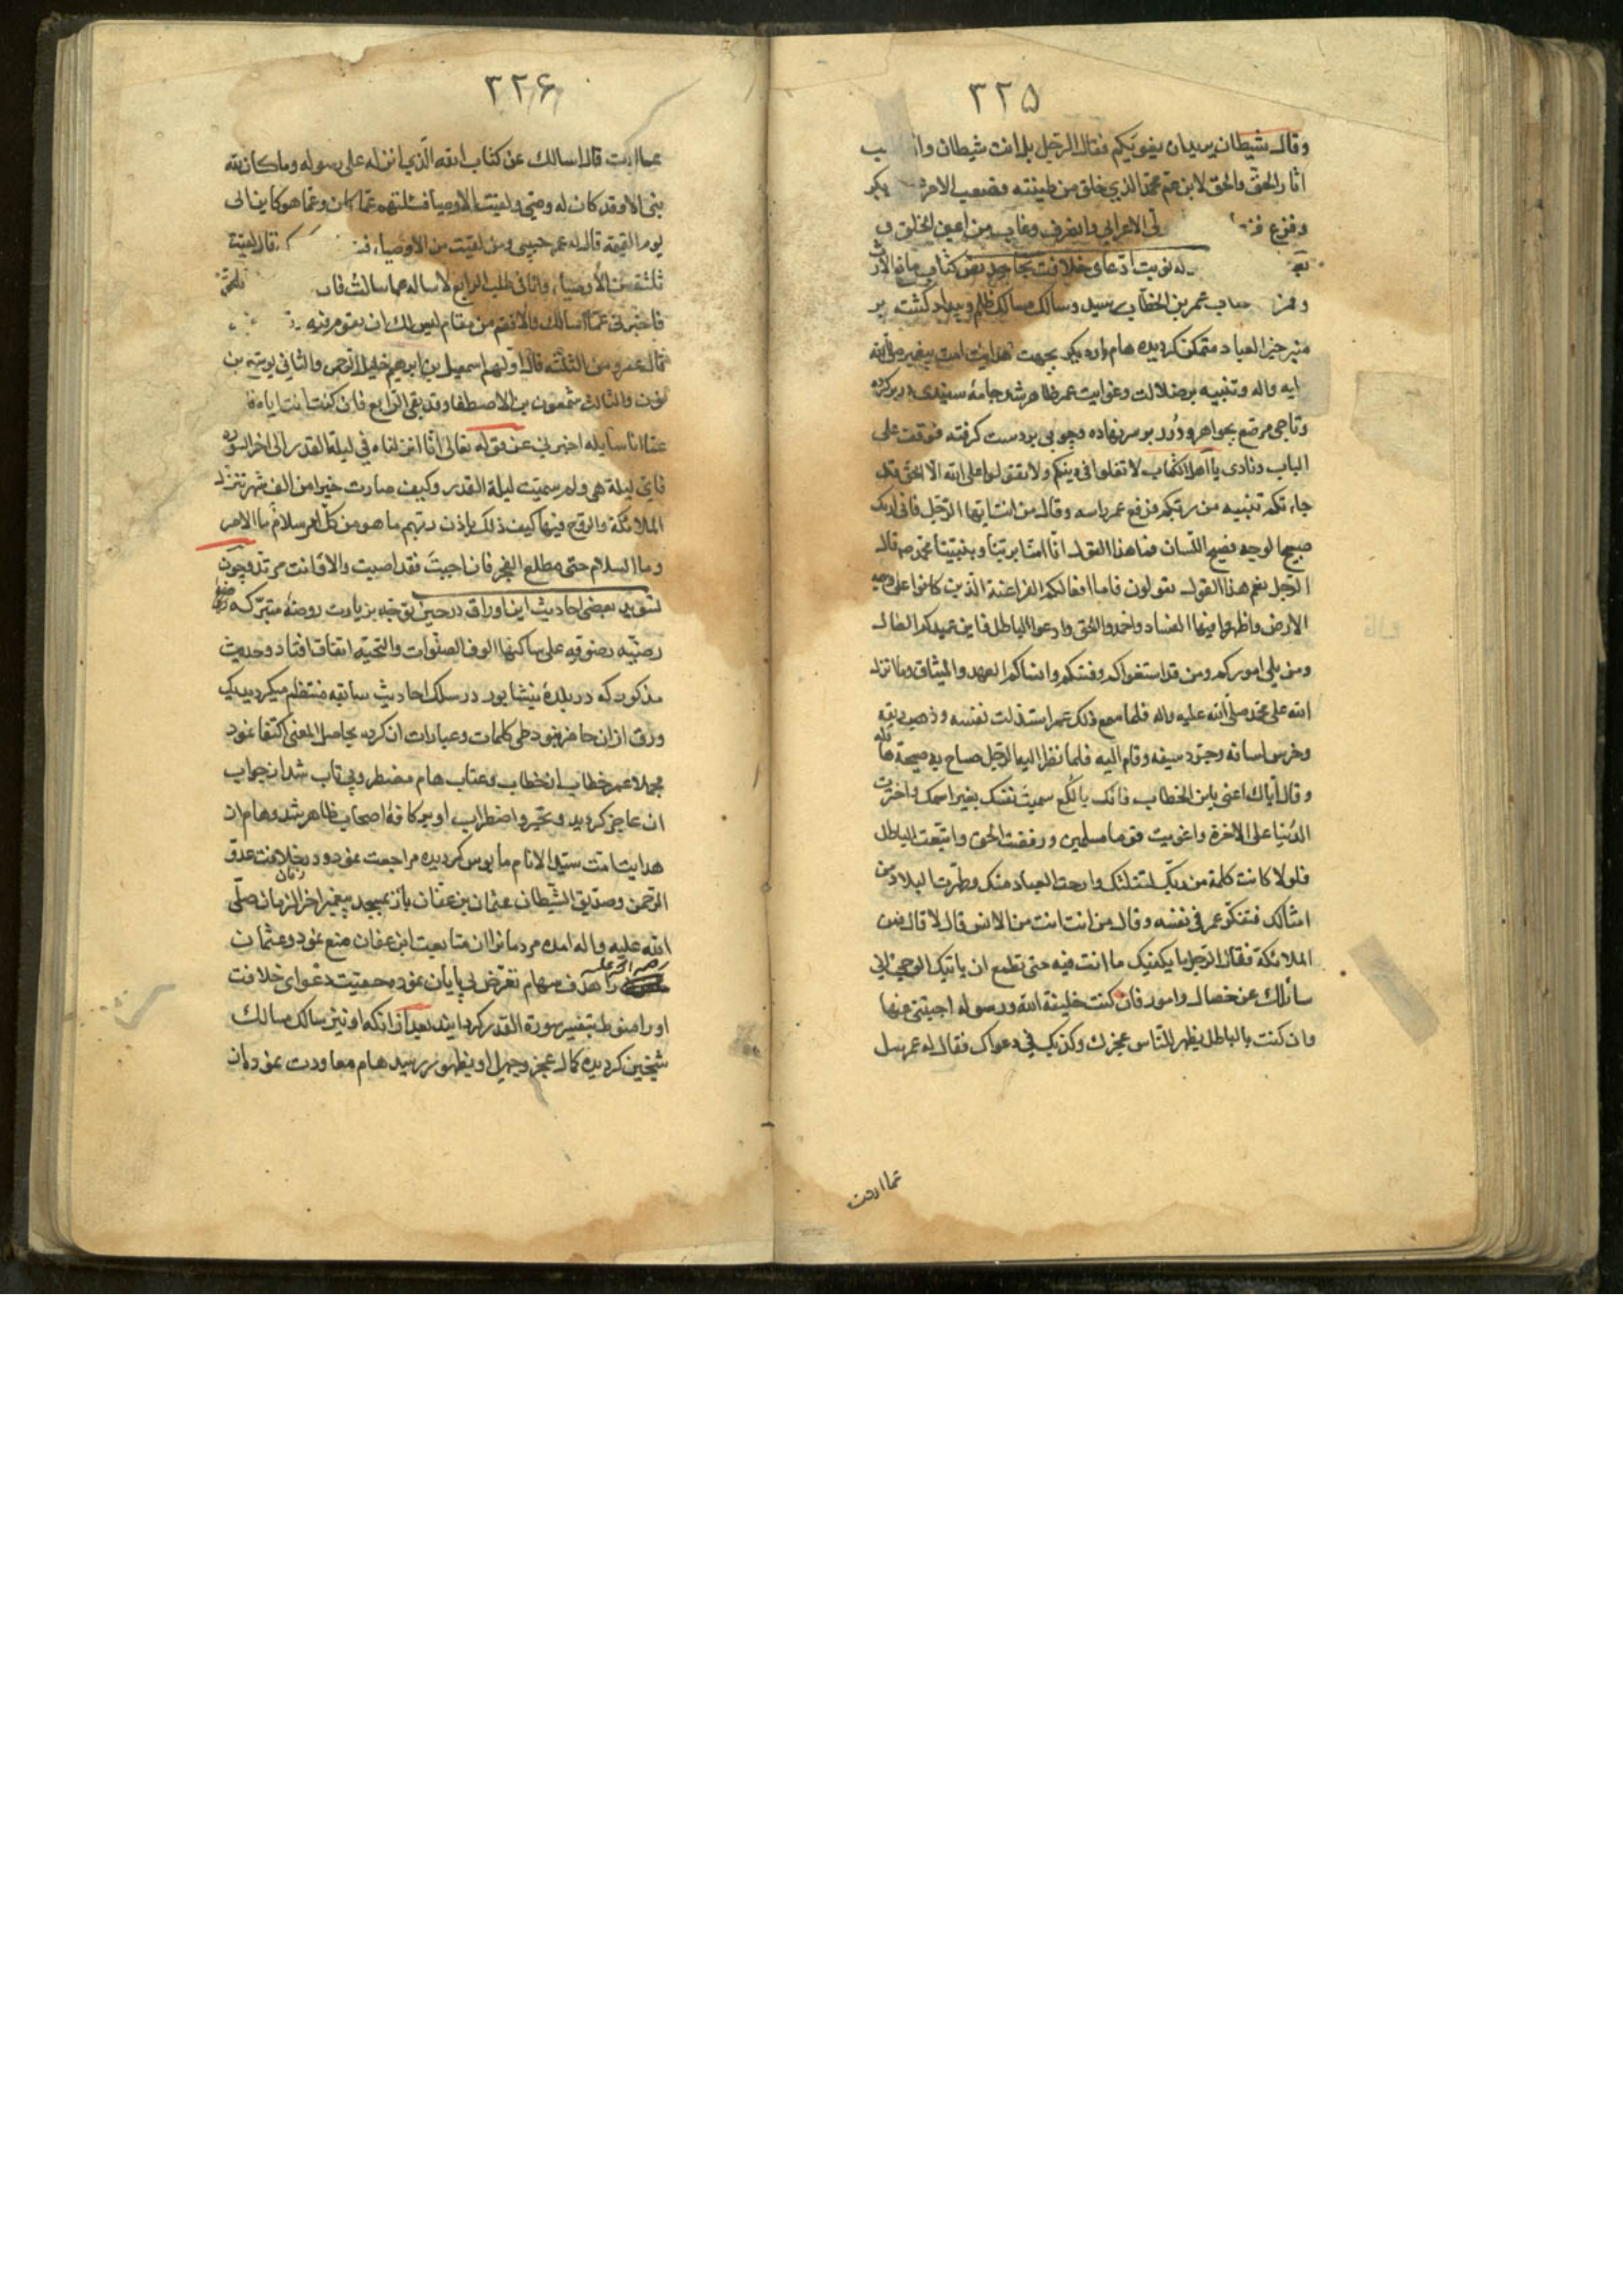 ٣٢٥
وقال شيطان يريدان يغويكم فقال الرجل بل انت شيطان وانا
اثار الحق والحق لابن عم محمد الذي خلق من طينته فصعب الامر بكر
وفزع الاعرابي وانصرف وغاب من اعين الخلق
نوبت ادعاى خلافت
عمر بن الخطاب رسيد وسالك مسالك ظلم وبيداد كشته بر
منبر خير العباد متمكن كرديده هام باردیكر بجهت هدايت امت پيغمبر صلى الله
عليه واله وتنبيه بر ضلالت وغوايت عمر ظاهر شد جامهٔ سفيدى دربر كرده
وتاجى مرصع بجواهر ودرر بر سر نهاده وچوبى بر دست كرفته فوقف على
الباب ونادى يا اهل الكتاب لا تغلوا فى دينكم ولا تقولوا على الله الا الحق قد
جاءتكم تنبيه من ربكم فرفع عمر راسه وقال من انت ايها الرجل فانى اراك
صبيح الوجه فصيح اللسان فما هذا القول انا امنا بربنا وبنبينا محمد ص قال
الرجل نعم هذا القول تقولون فاما افعالكم افعال الفراعنة الذين كانوا على وجه
الارض واظهروا فيها الفساد واخمدوا الحق وادعوا الباطل فاين عميدكم الضال
ومن يلى اموركم ومن قد استغواكم وفتنكم وانساكم العهد والميثاق وما نزل
الله على محمد صلى الله عليه واله فلما سمع ذلك عمر استذلت نفسه وذهب ريقه
وخرس لسانه وجرد سيفه وقام اليه فلما نظر اليه الرجل صاح به صيحة هائلة
وقال اياك اعنى يابن الخطاب فانك يا لكع سميت نفسك بغير اسمك واخترت
الدنيا على الاخرة واغويت قوما مسلمين ورفضت الحق واتبعت الباطل
فلولا كانت كلمة من ربك لقتلتك وارحت العباد منك وطهرت البلاد من
امثالك فتفكر عمر فى نفسه وقال من انت انت من الانس قال لا قال فمن
الملائكة فقال الرجل ما يكفيك ما انت فيه حتى تطمع ان ياتيك الوحى انى
سائلك عن خصال وامور فان كنت خليفة الله ورسوله اجبتنى عنها
وان كنت بالباطل يظهر للناس عجزك وكذبك فى دعواك فقال له عمر سل
عما اردت
٣٢٦
عما اردت قال اسالك عن كتاب الله الذي انزله على رسوله وما كان لله
نبى الا وقد كان له وصى ولقيت الاوصيا فسئلتهم عما كان وعما هو كاين الى
يوم القيمة قال له عمر حبيبى ومن لقيت من الاوصياء قال لقيت
ثلثة من الاوصياء وانا فى طلب الرابع لاساله عما سالت
فاخبرنى عما اسالك والا فقم من مقام ليس لك ان تقوم فيه
فقال عمر ومن الثلثة قال اولهم اسمعيل بن ابرهيم خليل الرحمن والثانى يوشع بن
نون والثالث شمعون بن الاصطفا وقد بقى الرابع فان كنت انت اياه
عما انا سايله اخبرنى عن قوله تعالى انا انزلناه فى ليلة القدر الى اخر السوره
فاى ليلة هى ولم سميت ليلة القدر وكيف صارت خيرا من الف شهر تنزل
الملائكة والروح فيها كيف ذلك باذن ربهم ما هو من كل امر سلام ما الامر
وما السلام حتى مطلع الفجر فان اجبت فقد اصبت والا فانت مرتد وچون
تسويد بعضى احاديث اين اوراق در حين توجه بزيارت روضهٔ متبركه
رضيه رضويه على ساكنها الوف الصلوات والتحيه اتفاق افتاد وحديث
مذكور كه در بلدهٔ نيشابور در سلك احاديث سابقه منتظم ميكرديد يك
ورق ازان حاضر نبود طى كلمات وعبارات ان كرده بحاصل المعنى اكتفا نمود
مجملا عمر خطاب از خطاب وعتاب هام مضطر وبى تاب شد از جواب
ان عاجز كرديد وتحير واضطراب او بر كافهٔ اصحاب ظاهر شد وهام از
هدايت امت سيد الانام مايوس كرديده مراجعت نمود ودر زمان خلافت عدو
الرحمن وصديق الشيطان عثمان بن عفان باز بمسجد پيغمبر اخر الزمان صلى
الله عليه واله امده مردمانرا از متابعت ابن عفان منع نمود وعثمان
را هدف سهام تعرض بى پايان نمود وحقيت دعواى خلافت
اورا منوط بتفسير سورة القدر كردانيد بعد از انكه او نيز سالك مسالك
شيخين كرديده كمال عجز وجهل او بظهور رسيد هام معاودت نمود وان